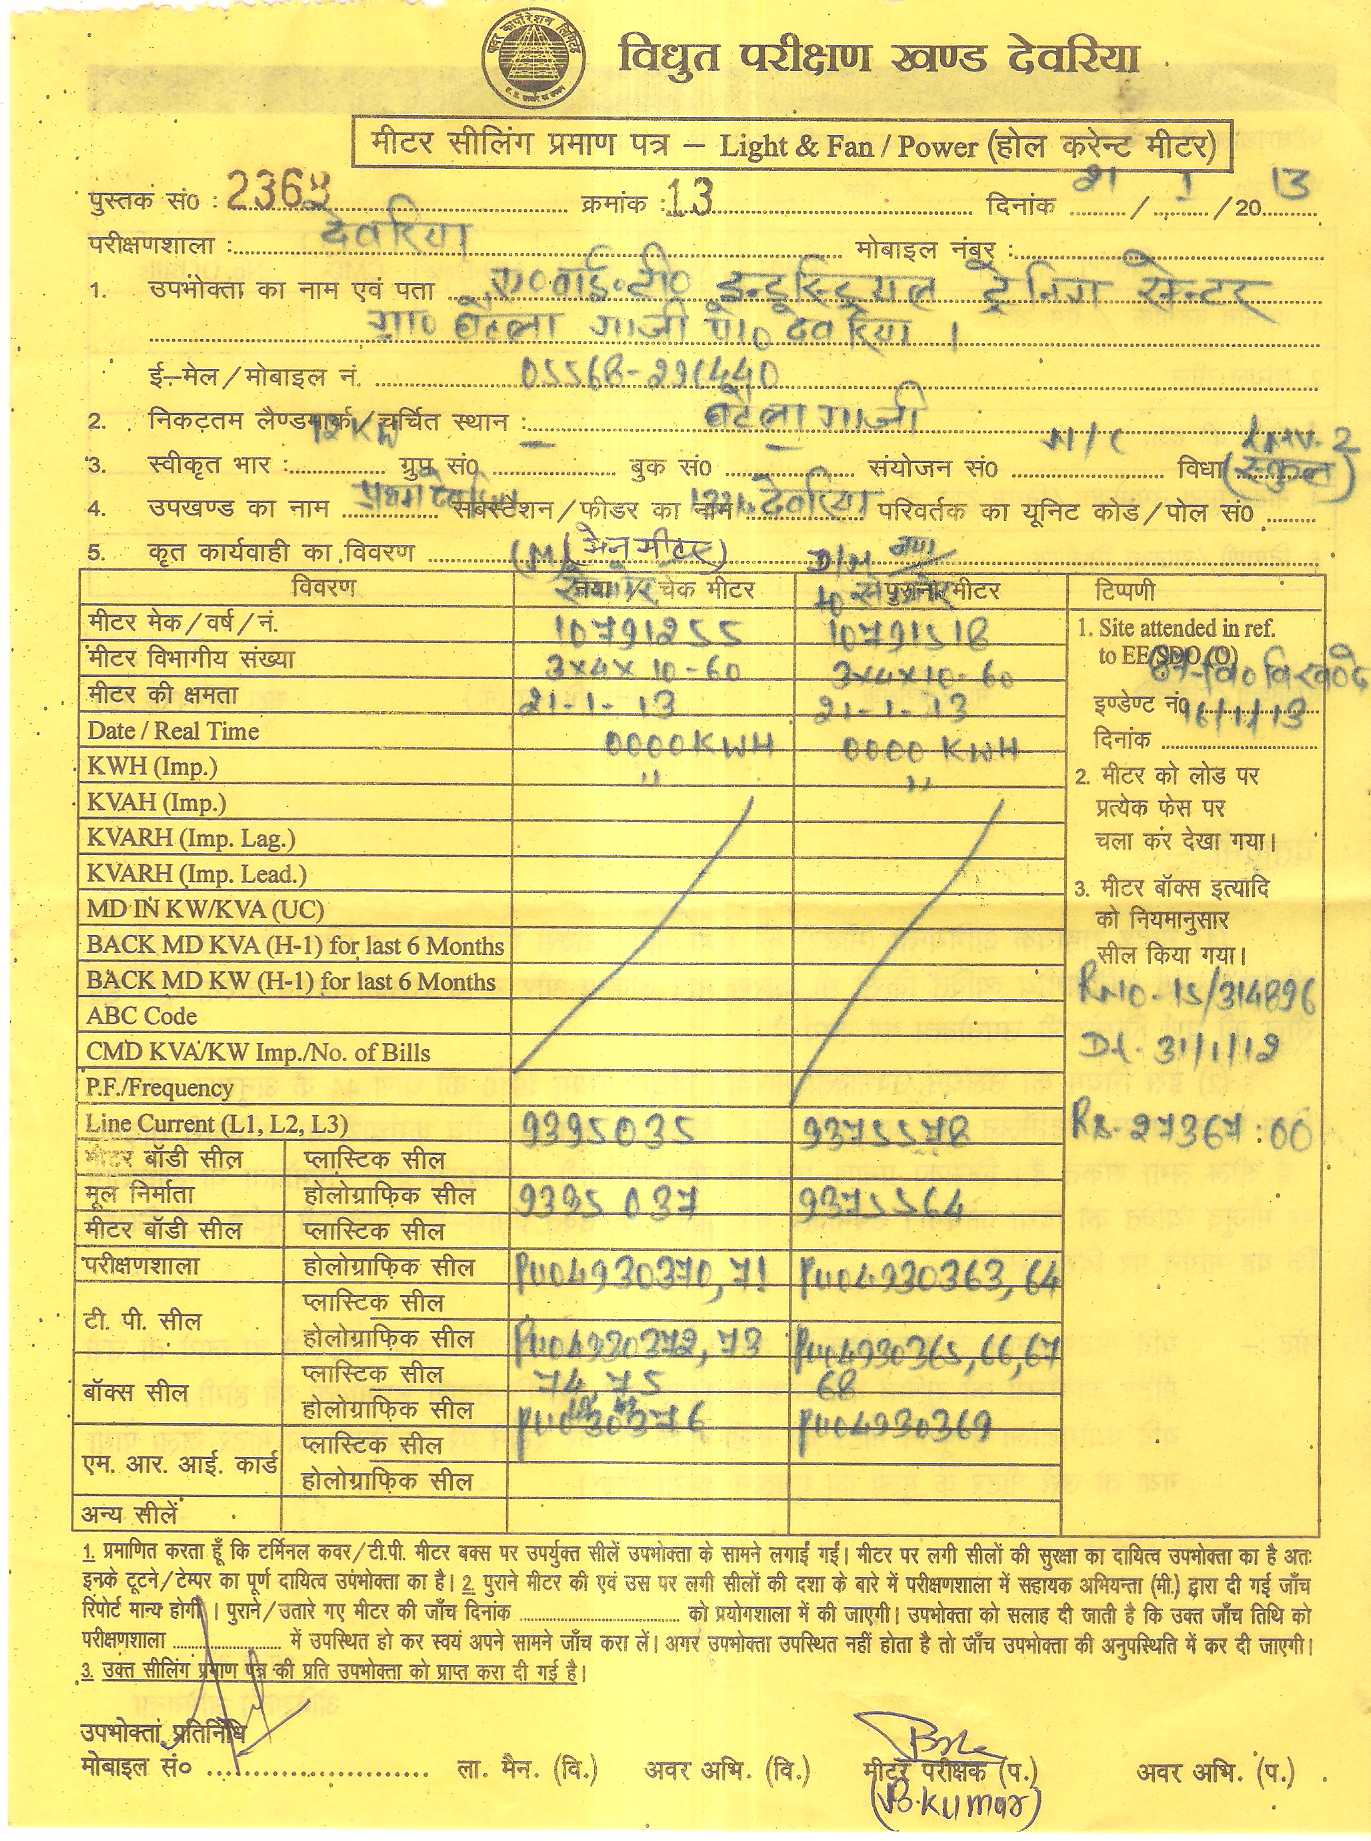 विधुत परीक्षण खण्ड देवरिया
मीटर सीलिंग प्रमाण पत्र – Light & Fan / Power (होल करेन्ट मीटर)
पुस्तक सं0 : 2368 क्रमांक : 13 दिनांक 21 / 1 / 20 13
परीक्षणशाला : देवरिया मोबाइल नंबर :
1. उपभोक्ता का नाम एवं पता एस०वाई०टी० इन्डस्ट्रियल ट्रेनिंग सेन्टर
ग्रा० बैतला गाजी पो० देवरिया ।
ई–मेल / मोबाइल नं. 05568-221440
2. निकटतम लैण्डमार्क / चर्चित स्थान : गाजी
3. स्वीकृत भार : 12KW ग्रुप सं0 – बुक सं0 – संयोजन सं0 N/C विधा LMV-2 (स्कूल)
4. उपखण्ड का नाम सबस्टेशन / फीडर का नाम देवरिया परिवर्तक का यूनिट कोड / पोल सं0
5. कृत कार्यवाही का विवरण (मेन मीटर)
विवरण चेक मीटर पुराना मीटर टिप्पणी
मीटर मेक / वर्ष / नं. 10791255 10791518 1. Site attended in ref.
मीटर विभागीय संख्या 3x4x10-60 3x4x10-60 to EE/SDO (O)
मीटर की क्षमता 21-1-13 21-1-13 इण्डेण्ट नं0 16/1/13
Date / Real Time 0000KWH 0000 KWH दिनांक
KWH (Imp.) " " 2. मीटर को लोड पर
KVAH (Imp.) प्रत्येक फेस पर
KVARH (Imp. Lag.) चला कर देखा गया।
KVARH (Imp. Lead.) 3. मीटर बॉक्स इत्यादि
MD IN KW/KVA (UC) को नियमानुसार
BACK MD KVA (H-1) for last 6 Months सील किया गया।
BACK MD KW (H-1) for last 6 Months RNO-15/314896
ABC Code
CMD KVA/KW Imp./No. of Bills Dt- 31/1/12
P.F./Frequency
Line Current (L1, L2, L3) 9395035 9375578 Rs-27367:00
मीटर बॉडी सील प्लास्टिक सील
मूल निर्माता होलोग्राफ़िक सील 9395037 9375564
मीटर बॉडी सील प्लास्टिक सील
परीक्षणशाला होलोग्राफ़िक सील PU04930370, 71 PU04930363, 64
टी. पी. सील प्लास्टिक सील
होलोग्राफ़िक सील PU04930372, 73 PU04930365, 66, 67
बॉक्स सील प्लास्टिक सील 74, 75 68
होलोग्राफ़िक सील PU04930376 PU04930369
एम. आर. आई. कार्ड प्लास्टिक सील
होलोग्राफ़िक सील
अन्य सीलें
1. प्रमाणित करता हूँ कि टर्मिनल कवर / टी.पी. मीटर बक्स पर उपर्युक्त सीलें उपभोक्ता के सामने लगाई गईं। मीटर पर लगी सीलों की सुरक्षा का दायित्व उपभोक्ता का है अतः
इनके टूटने / टेम्पर का पूर्ण दायित्व उपभोक्ता का है। 2. पुराने मीटर की एवं उस पर लगी सीलों की दशा के बारे में परीक्षणशाला में सहायक अभियन्ता (मी.) द्वारा दी गई जाँच
रिपोर्ट मान्य होगी । पुराने / उतारे गए मीटर की जाँच दिनांक को प्रयोगशाला में की जाएगी। उपभोक्ता को सलाह दी जाती है कि उक्त जाँच तिथि को
परीक्षणशाला में उपस्थित हो कर स्वयं अपने सामने जाँच करा लें। अगर उपभोक्ता उपस्थित नहीं होता है तो जाँच उपभोक्ता की अनुपस्थिति में कर दी जाएगी।
3. उक्त सीलिंग प्रमाण पत्र की प्रति उपभोक्ता को प्राप्त करा दी गई है।
उपभोक्ता प्रतिनिधि
मोबाइल सं० ला. मैन. (वि.) अवर अभि. (वि.) मीटर परीक्षक (प.) अवर अभि. (प.)
(B.Kumar)